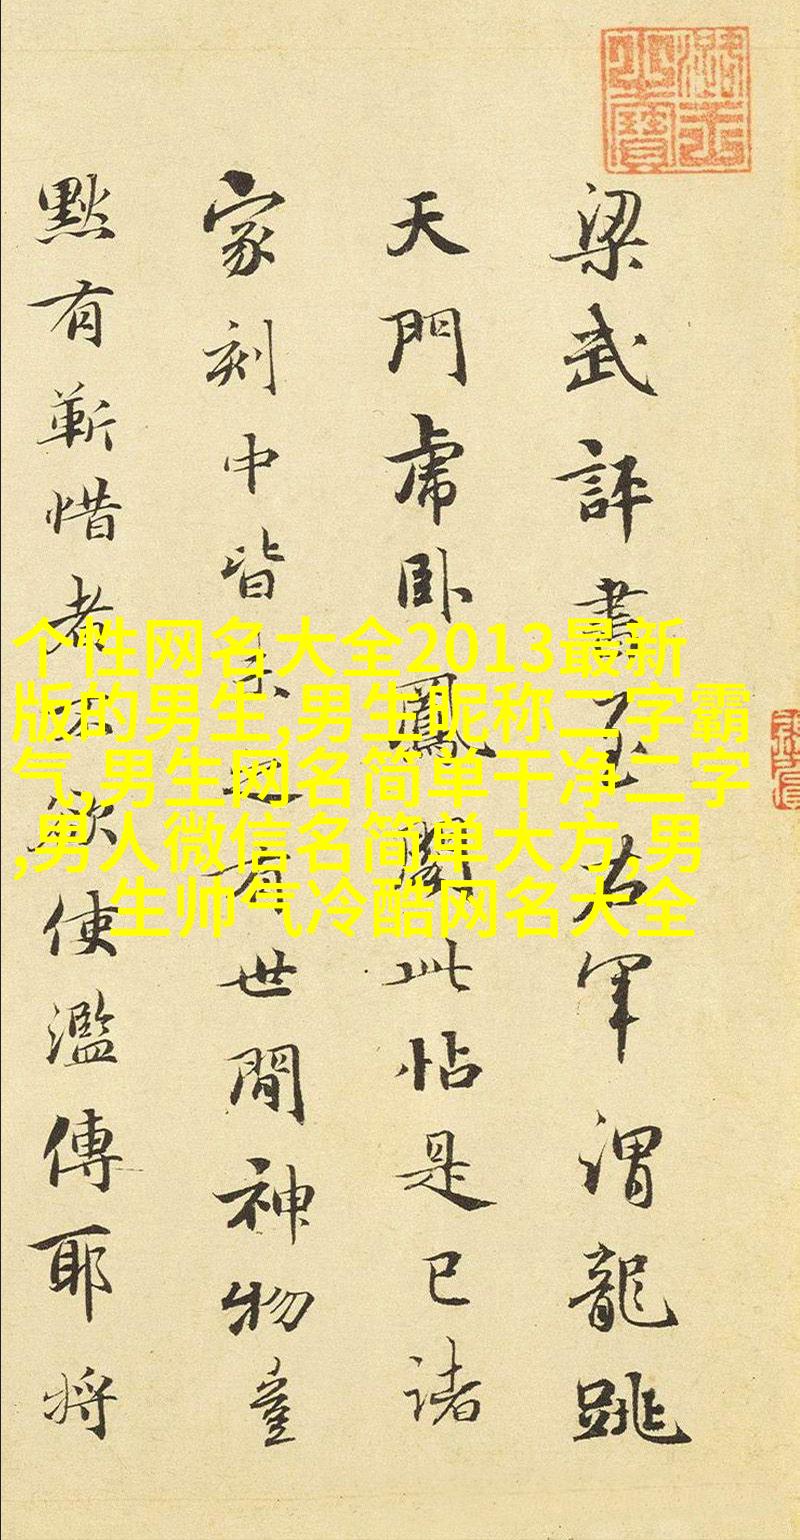 梁武評書至右軍謂龍跳
天門虎卧鳳閣此帖是已諸
家刻中皆未有世間神物豈
黙有靳惜者不欲使濫傳耶將
个性网名大全2013最新
版的男生,男生昵称二字霸
气,男生网名简单干净二字
,男人微信名简单大方,男
生帅气冷酷网名大全